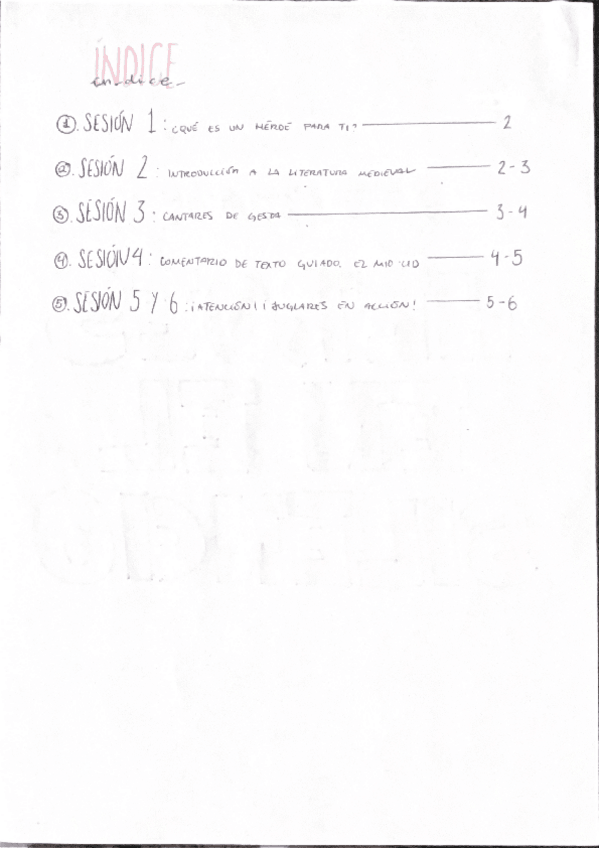 ÍNDICE
índice
①. SESIÓN 1: ¿QUÉ ES UN HÉROE PARA TI? 2
②. SESIÓN 2: INTRODUCCIÓN A LA LITERATURA MEDIEVAL 2-3
③. SESIÓN 3: CANTARES DE GESTA 3-4
④. SESIÓN 4: COMENTARIO DE TEXTO GUIADO. EL MIO CID 4-5
⑤. SESIÓN 5 Y 6: ¡ATENCIÓN! ¡JUGLARES EN ACCIÓN! 5-6